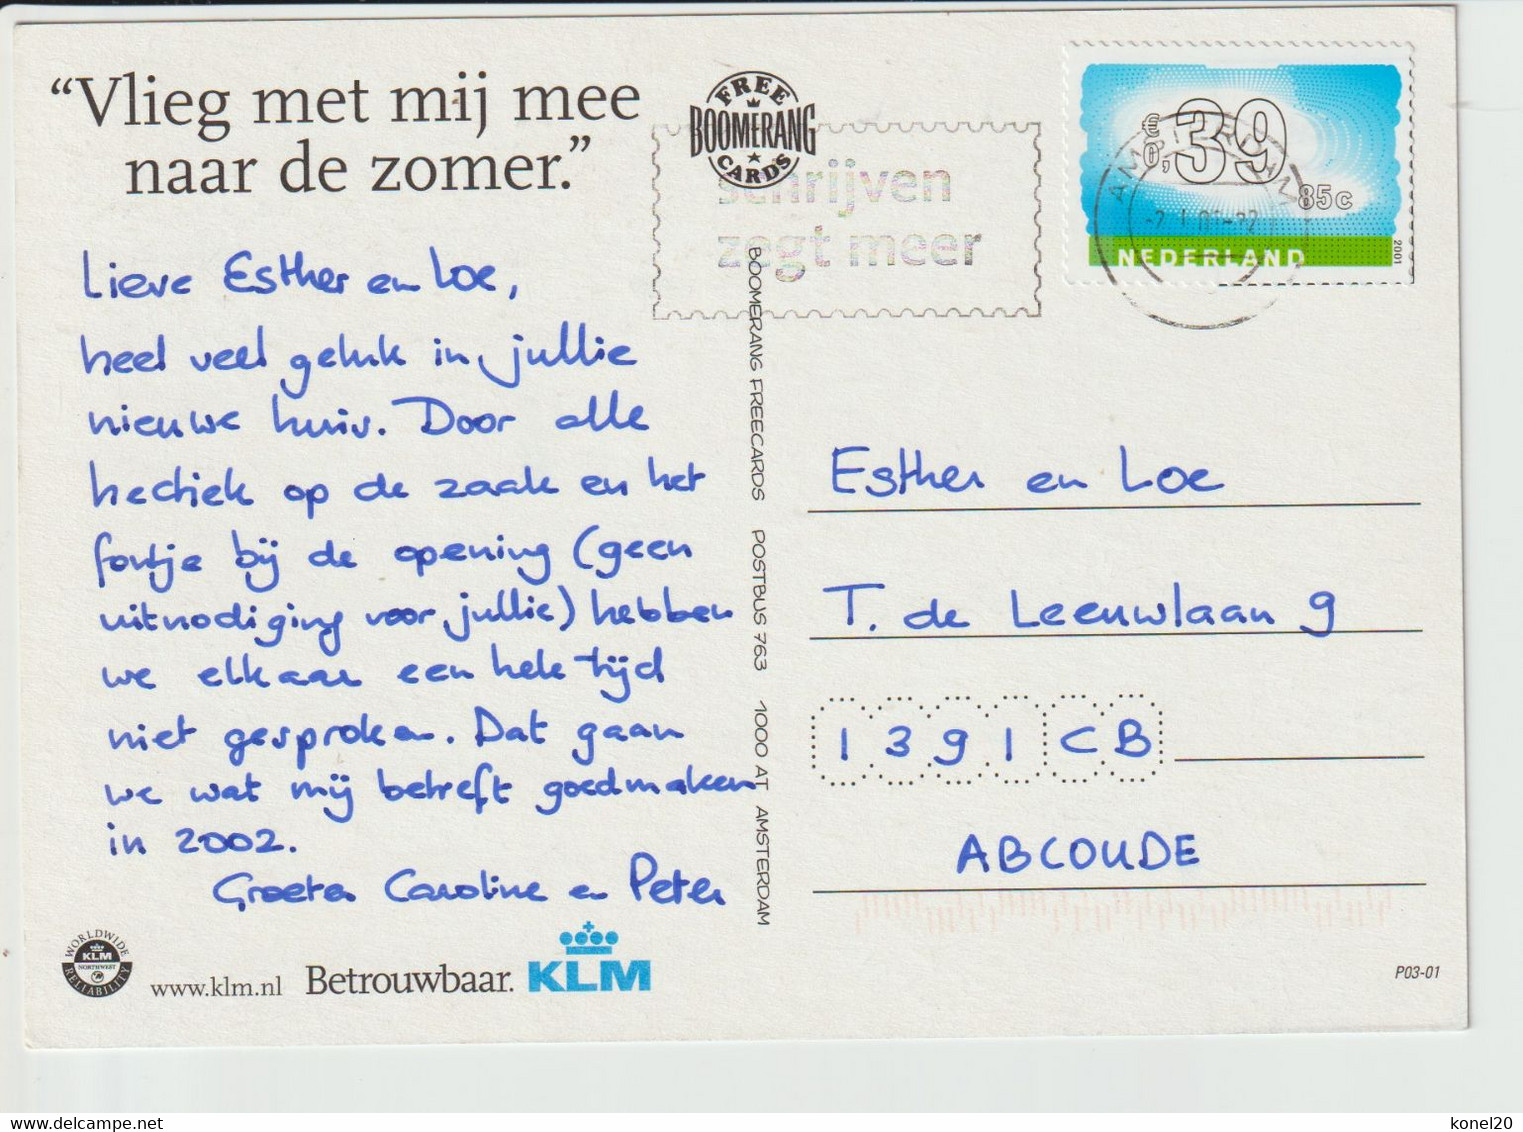 “Vlieg met mij mee
naar de zomer.”
FREE
BOOMERANG
CARDS
schrijven
zegt meer
€0,39
85c
NEDERLAND
2001
AMSTERDAM
Lieve Esther en Loe,
heel veel geluk in jullie
nieuwe huis. Door alle
hectiek op de zaak en het
fortje bij de opening (geen
uitnodiging voor jullie) hebben
we elkaar een hele tijd
niet gesproken. Dat gaan
we wat mij betreft goedmaken
in 2002.
Groeten Caroline en Peter
BOOMERANG FREECARDS POSTBUS 763 1000 AT AMSTERDAM
Esther en Loe
T. de Leeuwlaan 9
1391 CB
ABCOUDE
WORLDWIDE
KLM
NORTHWEST
RELIABILITY
www.klm.nl Betrouwbaar. KLM
P03-01
konel20